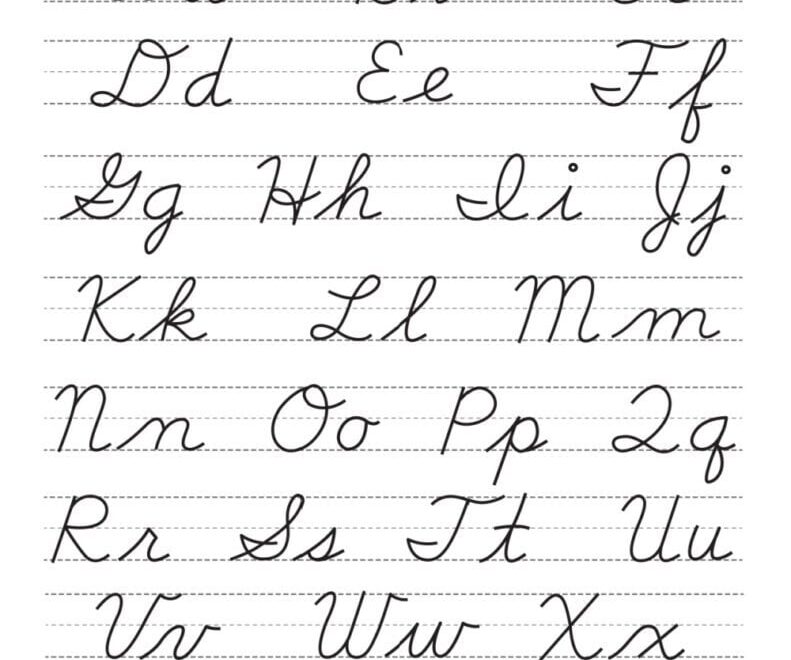 Dd Ee Ff
Gg Hh Ii Jj
Kk Ll Mm
Nn Oo Pp Qq
Rr Ss Tt Uu
Vv Ww Xx